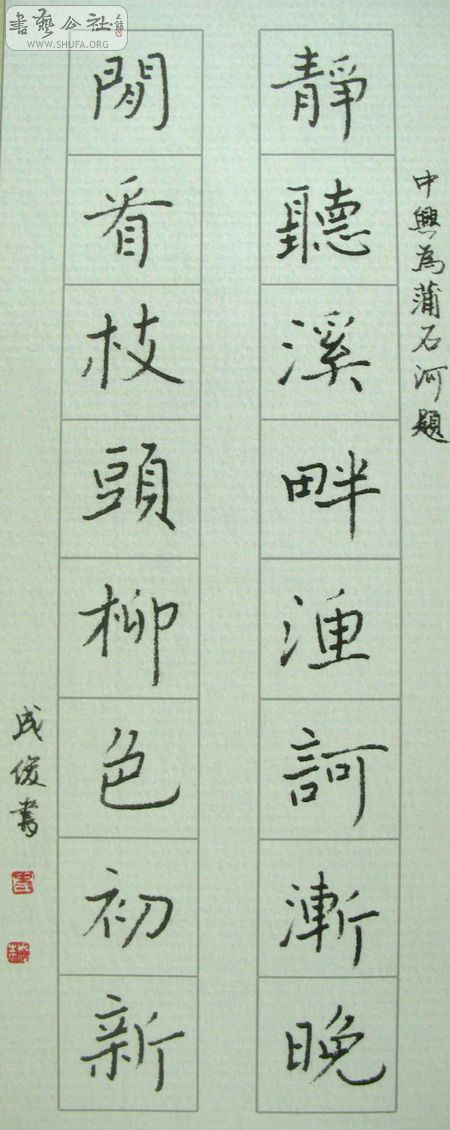 書藝公社
WWW.SHUFA.ORG
中興為蒲石河題
靜聽溪畔渔訶漸晚
閒看枝頭柳色初新
成俊書